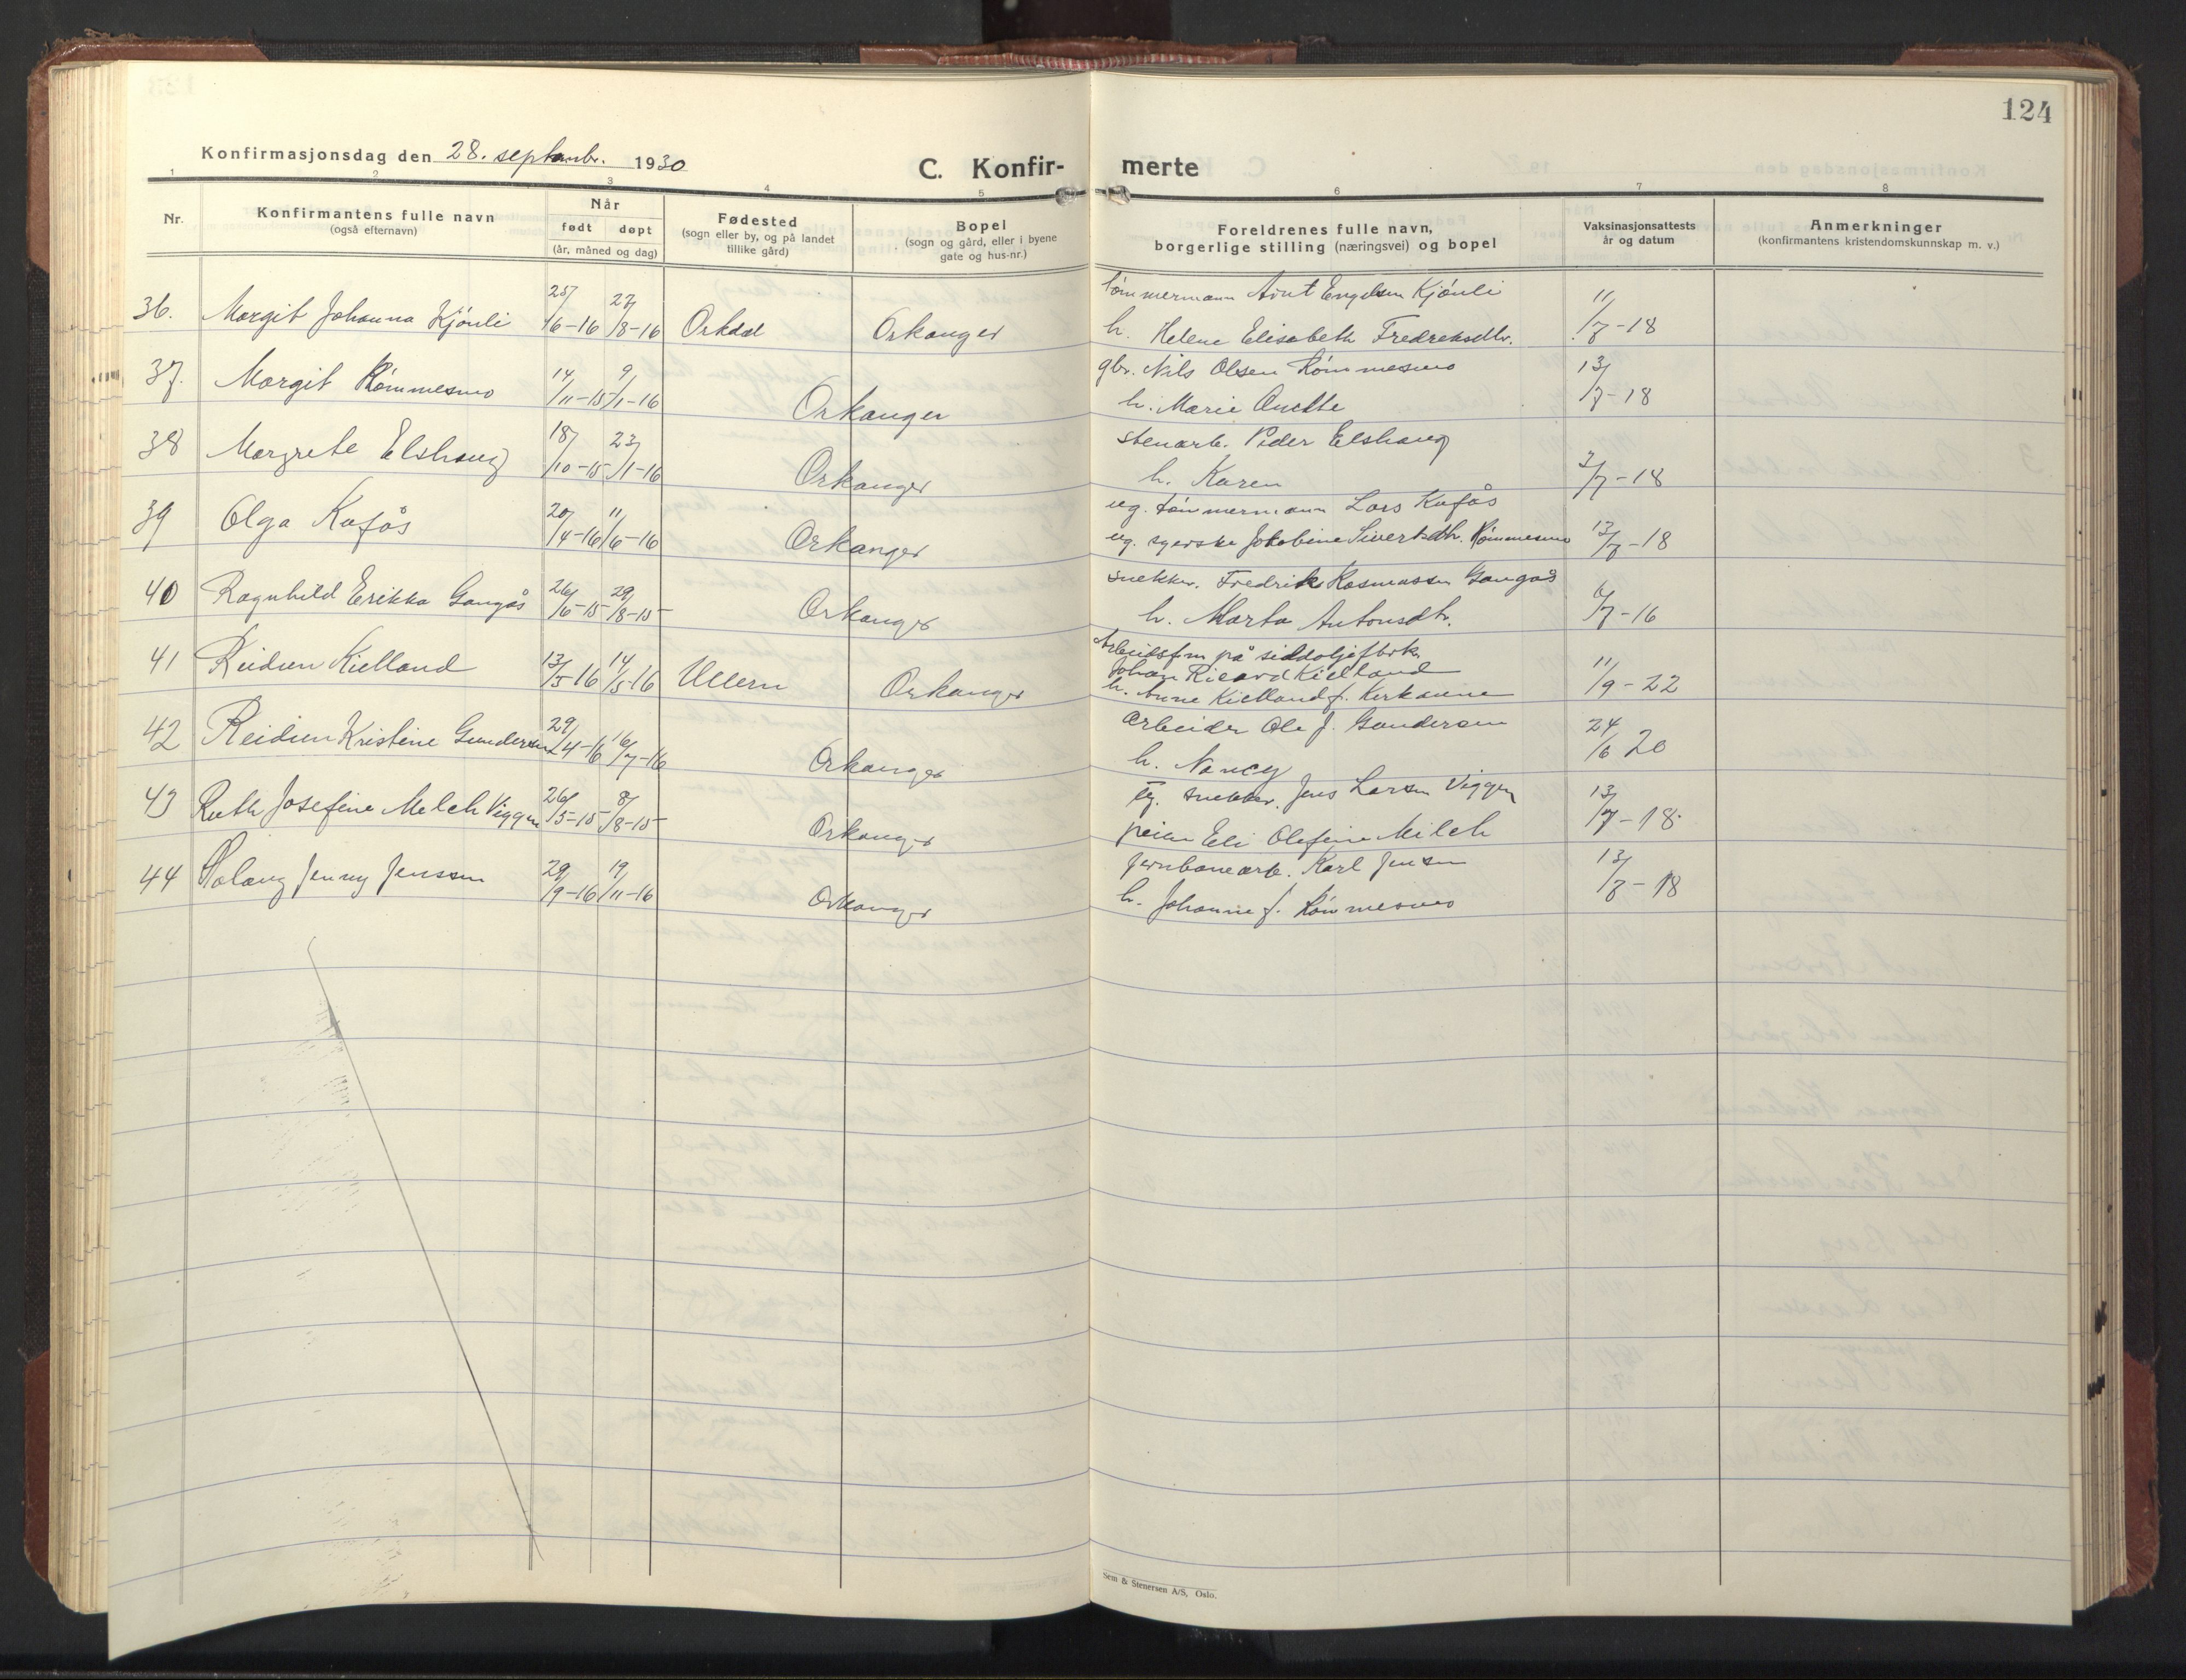 124
Konfirmasjonsdag den 28. septembr. 1930
C. Konfir- merte
1 2 3 4 5 6 7 8
Nr.
Konfirmantens fulle navn
(også efternavn)
Når
født døpt
(år, måned og dag)
Fødested
(sogn eller by, og på landet
tillike gård)
Bopel
(sogn og gård, eller i byene
gate og hus-nr.)
Foreldrenes fulle navn,
borgerlige stilling (næringsvei) og bopel
Vaksinasjonsattests
år og datum
Anmerkninger
(konfirmantens kristendomskunnskap m. v.)
36. Margit Johanna Kjönli 25/6-16 27/8-16 Orkdal Orkanger
tömmermann Arnt Engelsen Kjönli
h. Helene Elisabeth Fredriksdtr. 11/7-18
37. Margit Römmesmo 14/11-15 9/1-16 Orkanger
gbr. Nils Olsen Römmesmo
h. Marie Anette 13/7-18
38 Margrete Elshaug 18/10-15 23/1-16 Orkanger
stenarb. Peder Elshaug
h. Karen 3/7-18
39 Olga Kufås 20/4-16 11/6-16 Orkanger
ug. tömmermann Lars Kufås
ug. syerske Jakobine Sivertsdtr. Römmesmo 13/7-18
40 Ragnhild Erikka Gangås 26/6-15 29/8-15 Orkanger
snekker. Fredrik Rasmussen Gangås
h. Marta Antonsdtr. 6/7-16
41 Reidun Kielland 13/5-16 14/5-16 Ullern Orkanger
Arbeidsfm på sildoljefbrk.
Johan Ricard Kielland
h. Anne Kielland f. Kirkaune 11/9-22
42 Reidun Kristine Gundersen 29/4-16 16/7-16 Orkanger
Arbeider Ole J. Gundersen
h. Nancy 24/6 20
43 Ruth Josefine Melch Viggen 26/5-15 8/8-15 Orkanger
Eg. snekker. Jens Larsen Viggen
peike Eli Olefine Milch 13/7-18
44 Solaug Jenny Jenssen 29/9-16 19/11-16 Orkanger
Jernbanearb. Karl Jensen
h. Johanne f. Römmesmo 13/7-18
Sem & Stenersen A/S, Oslo.